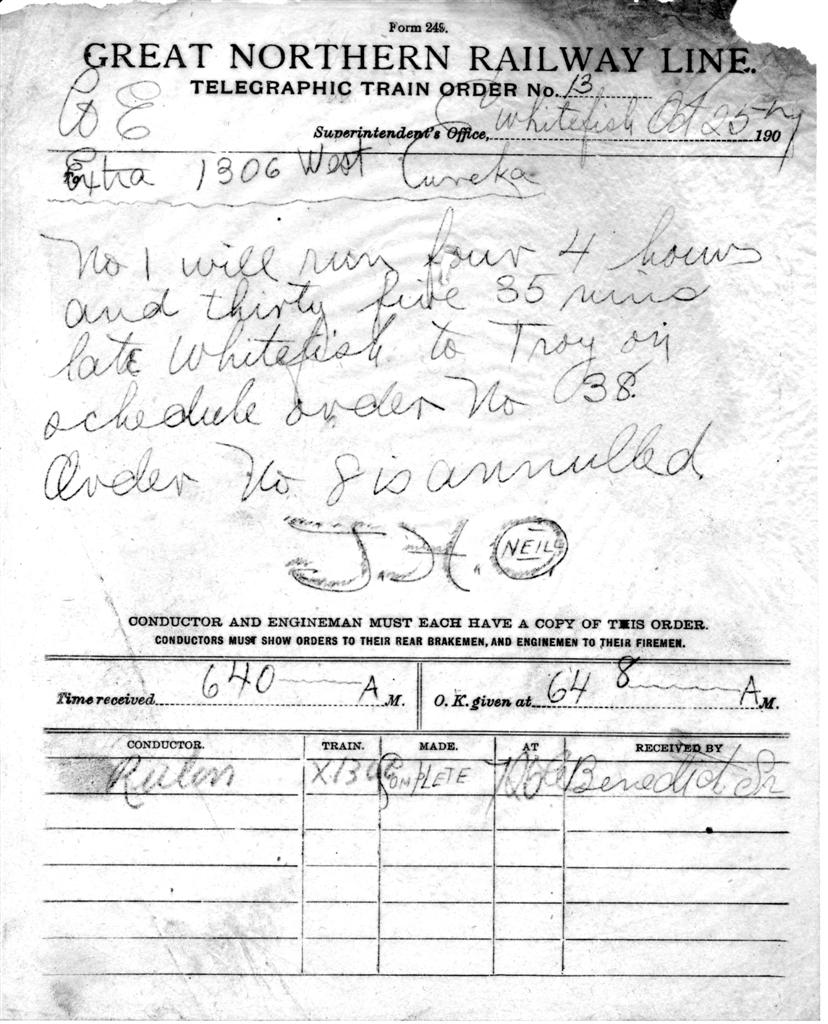 Form 249.
GREAT NORTHERN RAILWAY LINE.
TELEGRAPHIC TRAIN ORDER No. 13
C & E
Superintendent's Office, Whitefish Oct 25th 190
For Extra 1306 West Eureka
No 1 will run four 4 hours
and thirty five 35 mins
late Whitefish to Troy on
schedule order No 38.
Order No 8 is annulled
J. H. O. NEILL
CONDUCTOR AND ENGINEMAN MUST EACH HAVE A COPY OF THIS ORDER.
CONDUCTORS MUST SHOW ORDERS TO THEIR REAR BRAKEMEN, AND ENGINEMEN TO THEIR FIREMEN.
Time received 640 A M. O. K. given at 648 A M.
CONDUCTOR. TRAIN. MADE. AT RECEIVED BY
X1306 COMPLETE Benedict